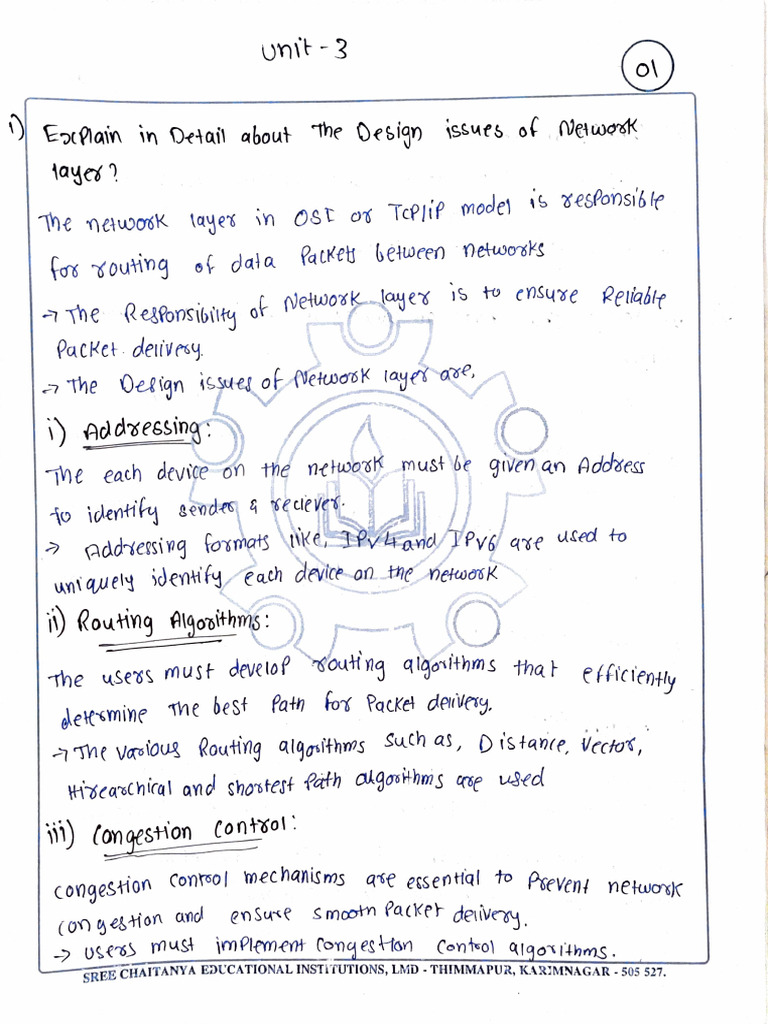 Unit - 3
01
1) Explain in Detail about The Design issues of Network
layer?
The network layer in OSI or TCP/IP model is responsible
for routing of data Packets between networks
→ The Responsibilty of Network layer is to ensure Reliable
Packet delivery.
→ The Design issues of Network layer are,
i) Addressing:
The each device on the network must be given an Address
to identify sender & reciever.
→ Addressing formats like, IPV4 and IPV6 are used to
uniquely identify each device on the network
ii) Routing Algorithms:
The users must develop routing algorithms that efficiently
determine The best Path for Packet delivery.
→ The various Routing algorithms such as, Distance, Vector,
Hirearchical and shortest Path algorithms are used
iii) Congestion Control:
Congestion control mechanisms are essential to Prevent network
congestion and ensure smooth Packet delivery.
→ users must implement congestion control algorithms.
SREE CHAITANYA EDUCATIONAL INSTITUTIONS, LMD - THIMMAPUR, KARIMNAGAR - 505 527.